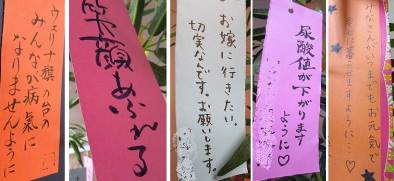 ウェリナ旗の台の
みんなが病氣に
なりませんように
笑顔あふれる
お嫁に行きたい。
切実なんです。お願いします。
尿酸値が下がります
ように♡
みなさんいつまでもお元気で